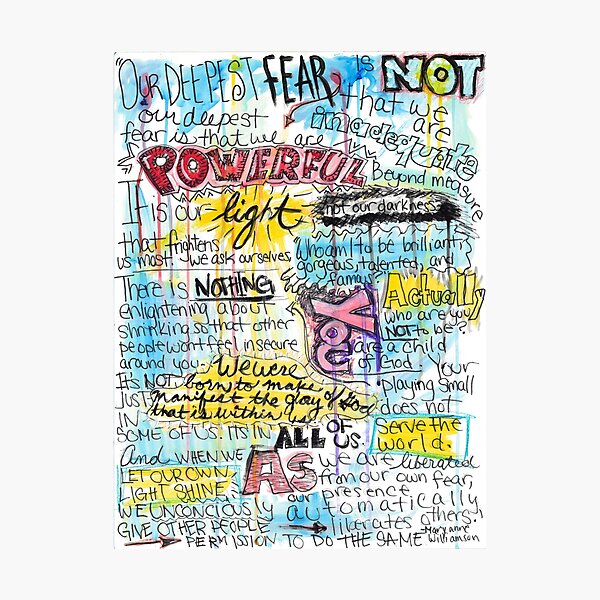 "OUR DEEPEST FEAR IS NOT
that we
are
inadequate
our deepest
fear is that we are
POWERFUL
Beyond measure
It is our light
not our darkness
that frightens
us most. We ask ourselves,
"Who am I to be brilliant,
gorgeous, talented, and
famous?"
Actually
who are you
NOT to be?
You are a child
of God. Your
playing small
does not
Serve the
world.
There is NOTHING
enlightening about
shrinking so that other
people won't feel insecure
around you.
We were
born to make
manifest the glory of God
that is within us
IT'S NOT
JUST
IN
SOME OF US. ITS IN ALL OF US.
And WHEN WE
LET OUR OWN
LIGHT SHINE,
WE UNCONCIOUSLY
GIVE OTHER PEOPLE
PERMISSION TO DO THE SAME
AS we are liberated
from our own fear,
our presence
automatically
liberates others.
-Maryanne
Williamson